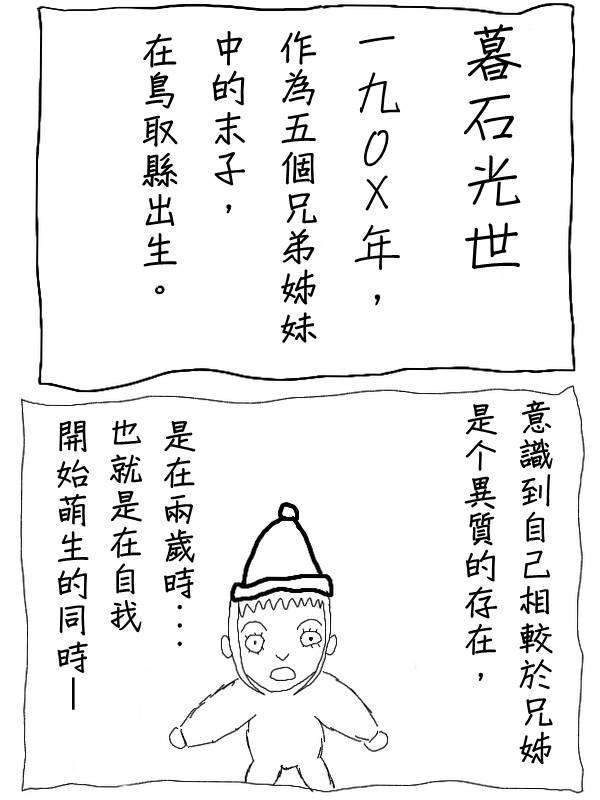 暮石光世
一九OX年，
作為五個兄弟姊妹
中的末子，
在鳥取縣出生。
意識到自己相較於兄姊
是个異質的存在，
是在兩歲時…
也就是在自我
開始萌生的同時—